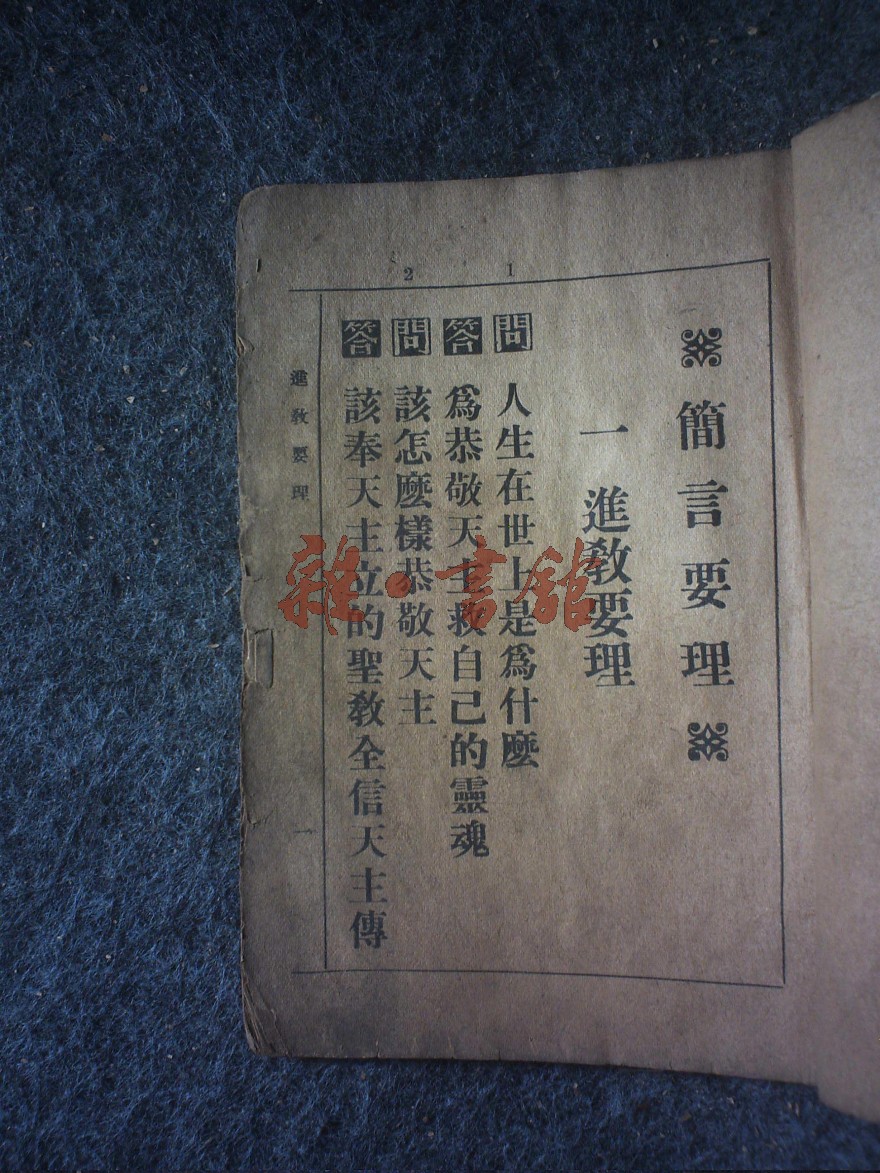 簡言要理
一 進教要理
1
問 人生在世上是爲什麼
答 爲恭敬天主救自己的靈魂
2
問 該怎麼樣恭敬天主
答 該奉天主立的聖教全信天主傳
進教要理 一
雜·書館